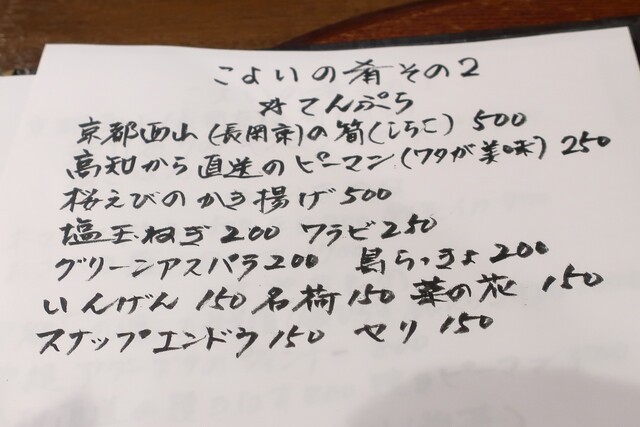 こよいの肴その2
☆てんぷら
京都西山(長岡京)の筍(しらこ) 500
高知から直送のピーマン(ワタが美味) 250
桜えびのかき揚げ 500
塩玉ねぎ 200 ワラビ 250
グリーンアスパラ 200 島らっきょ 200
いんげん 150 名荷 150 菜の花 150
スナップエンドウ 150 セリ 150